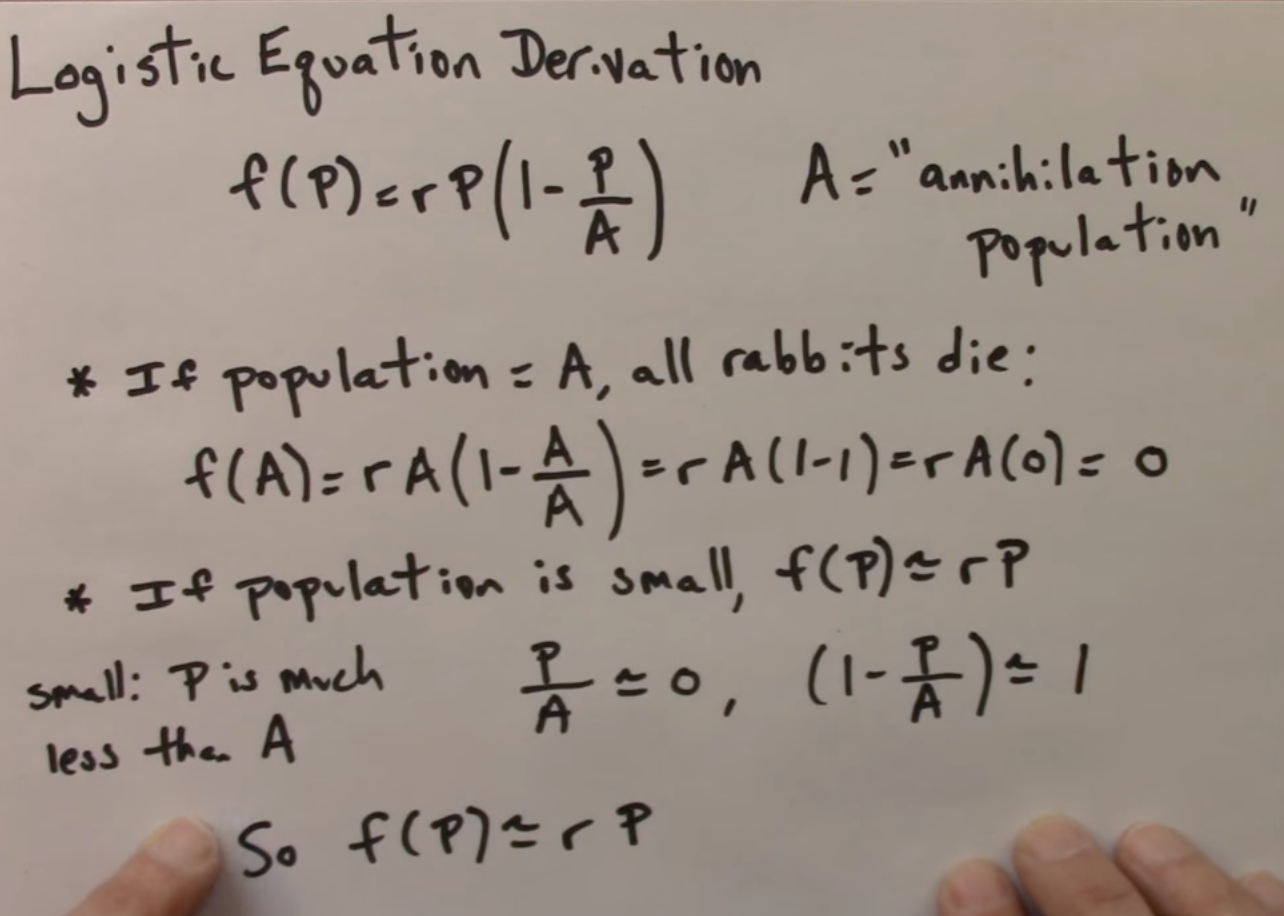 Logistic Equation Derivation
f(P) = r P (1 - P/A)    A = "annihilation
population"
* If population = A, all rabbits die:
f(A) = r A (1 - A/A) = r A (1-1) = r A(0) = 0
* If population is small, f(P) ≃ r P
small: P is much
less than A
P/A ≃ 0, (1 - P/A) ≃ 1
So f(P) ≃ r P